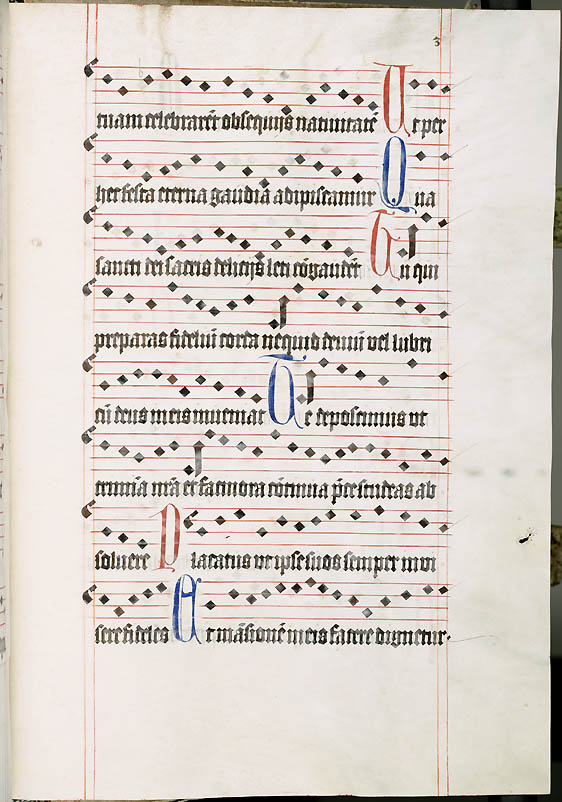 3
tuam celebrarēt obsequijs natiuitatē Ut per
hec festa eterna gaudia adipiscamur Qua
sancti dei sacris delicijs leti cōgaudēt In qui
preparas fideliū corda ne quid deuiū vel lubri
cū deus in eis inueniat Te deposcimus ut
crimina nr̄a et facinora cōtinua p̄ce studeas ab
soluere Placatus ut ipse suos semper inui
sere fideles Et māsionē in eis facere dignetur.